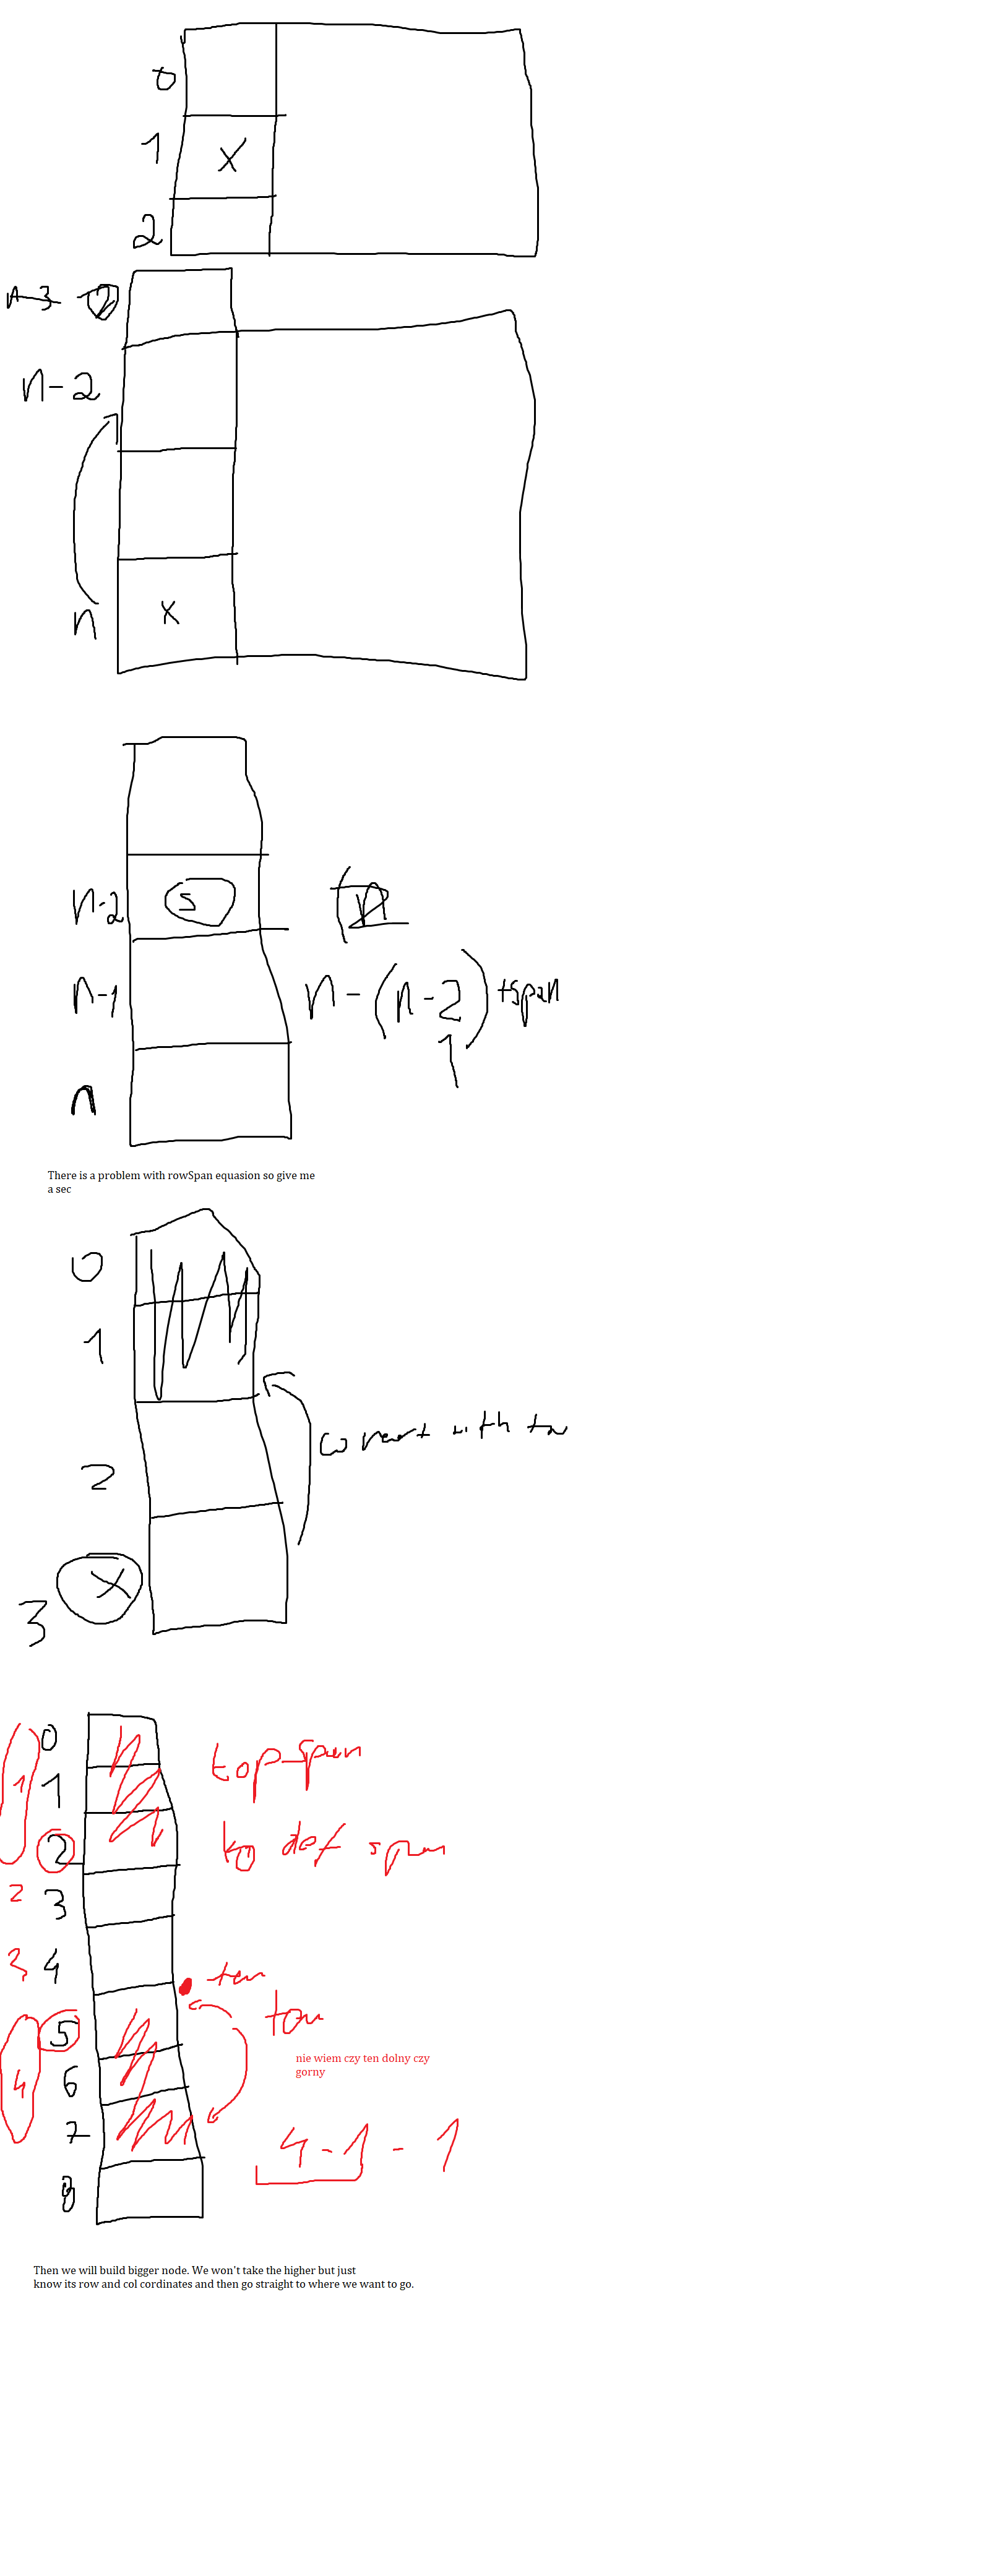 0
1 X
2
n-3
n-2
n X
n-2 S
n-1 n-(n-2)+span
1
n
There is a problem with rowSpan equasion so give me
a sec
0
1
2
X
3
0 top-span
1 1
2 def span
2 3
3 4 ten
5 ten
nie wiem czy ten dolny czy
gorny
4 6
7 4-1-1
8
Then we will build bigger node. We won't take the higher but just
know its row and col cordinates and then go straight to where we want to go.